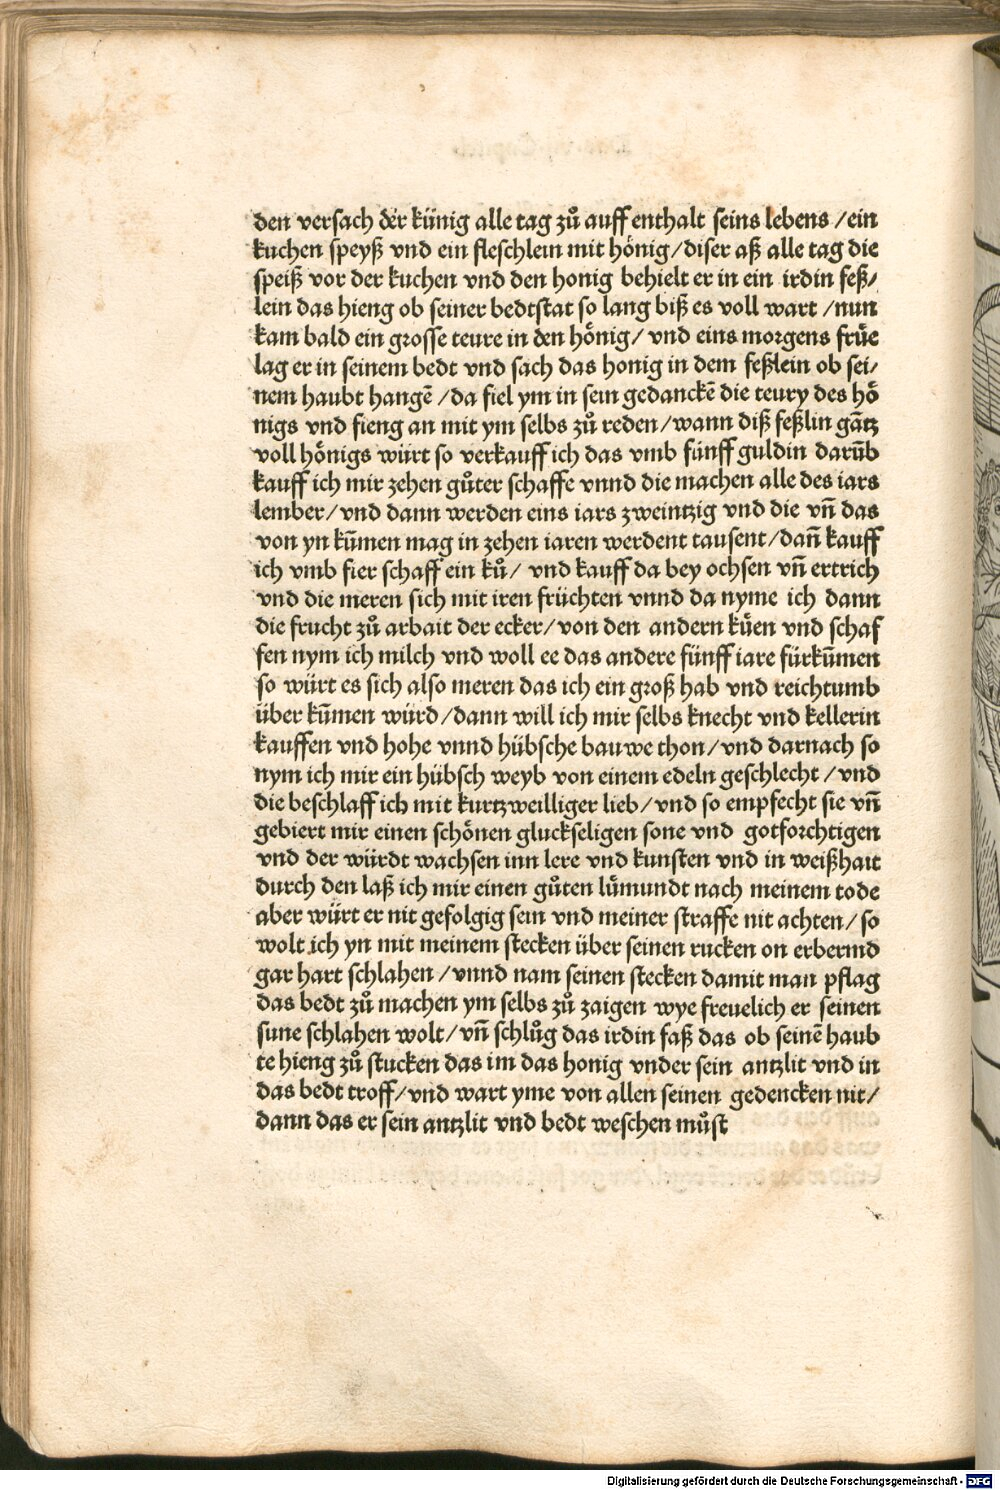 den versach der künig alle tag zů auff enthalt seins lebens /ein
kuchen speyß vnd ein fleschlein mit hönig/diser aß alle tag die
speiß vor der kuchen vnd den honig behielt er in ein irdin feß/
lein das hieng ob seiner bedtstat so lang biß es voll wart /nun
kam bald ein grosse teure in den hönig/ vnd eins morgens früe
lag er in seinem bedt vnd sach das honig in dem feßlein ob sei/
nem haubt hangē /da fiel ym in sein gedanckē die teury des hö
nigs vnd fieng an mit ym selbs zů reden/wann diß feßlin gātz
voll hönigs würt so verkauff ich das vmb fünff guldin darūb
kauff ich mir zehen gůter schaffe vnnd die machen alle des iars
lember/vnd dann werden eins iars zweintzig vnd die vn̄ das
von yn kūmen mag in zehen iaren werdent tausent/dan̄ kauff
ich vmb fier schaff ein ků/ vnd kauff da bey ochsen vn̄ ertrich
vnd die meren sich mit iren früchten vnnd da nyme ich dann
die frucht zů arbait der ecker/von den andern küen vnd schaf
fen nym ich milch vnd woll ee das andere fünff iare fürkūmen
so würt es sich also meren das ich ein groß hab vnd reichtumb
über kūmen würd/dann will ich mir selbs knecht vnd kellerin
kauffen vnd hohe vnnd hübsche bauwe thon/vnd darnach so
nym ich mir ein hübsch weyb von einem edeln geschlecht /vnd
die beschlaff ich mit kurtzweilliger lieb/vnd so empfecht sie vn̄
gebiert mir einen schönen gluckseligen sone vnd gotforchtigen
vnd der würdt wachsen inn lere vnd kunsten vnd in weißhait
durch den laß ich mir einen gůten lümundt nach meinem tode
aber würt er nit gefolgig sein vnd meiner straffe nit achten/so
wolt ich yn mit meinem stecken über seinen rucken on erbermd
gar hart schlahen /vnnd nam seinen stecken damit man pflag
das bedt zů machen ym selbs zů zaigen wye freuelich er seinen
sune schlahen wolt/vn̄ schlůg das irdin faß das ob seinē haub
te hieng zů stucken das im das honig vnder sein antzlit vnd in
das bedt troff/vnd wart yme von allen seinen gedencken nit/
dann das er sein antzlit vnd bedt weschen můst
Digitalisierung gefördert durch die Deutsche Forschungsgemeinschaft - DFG